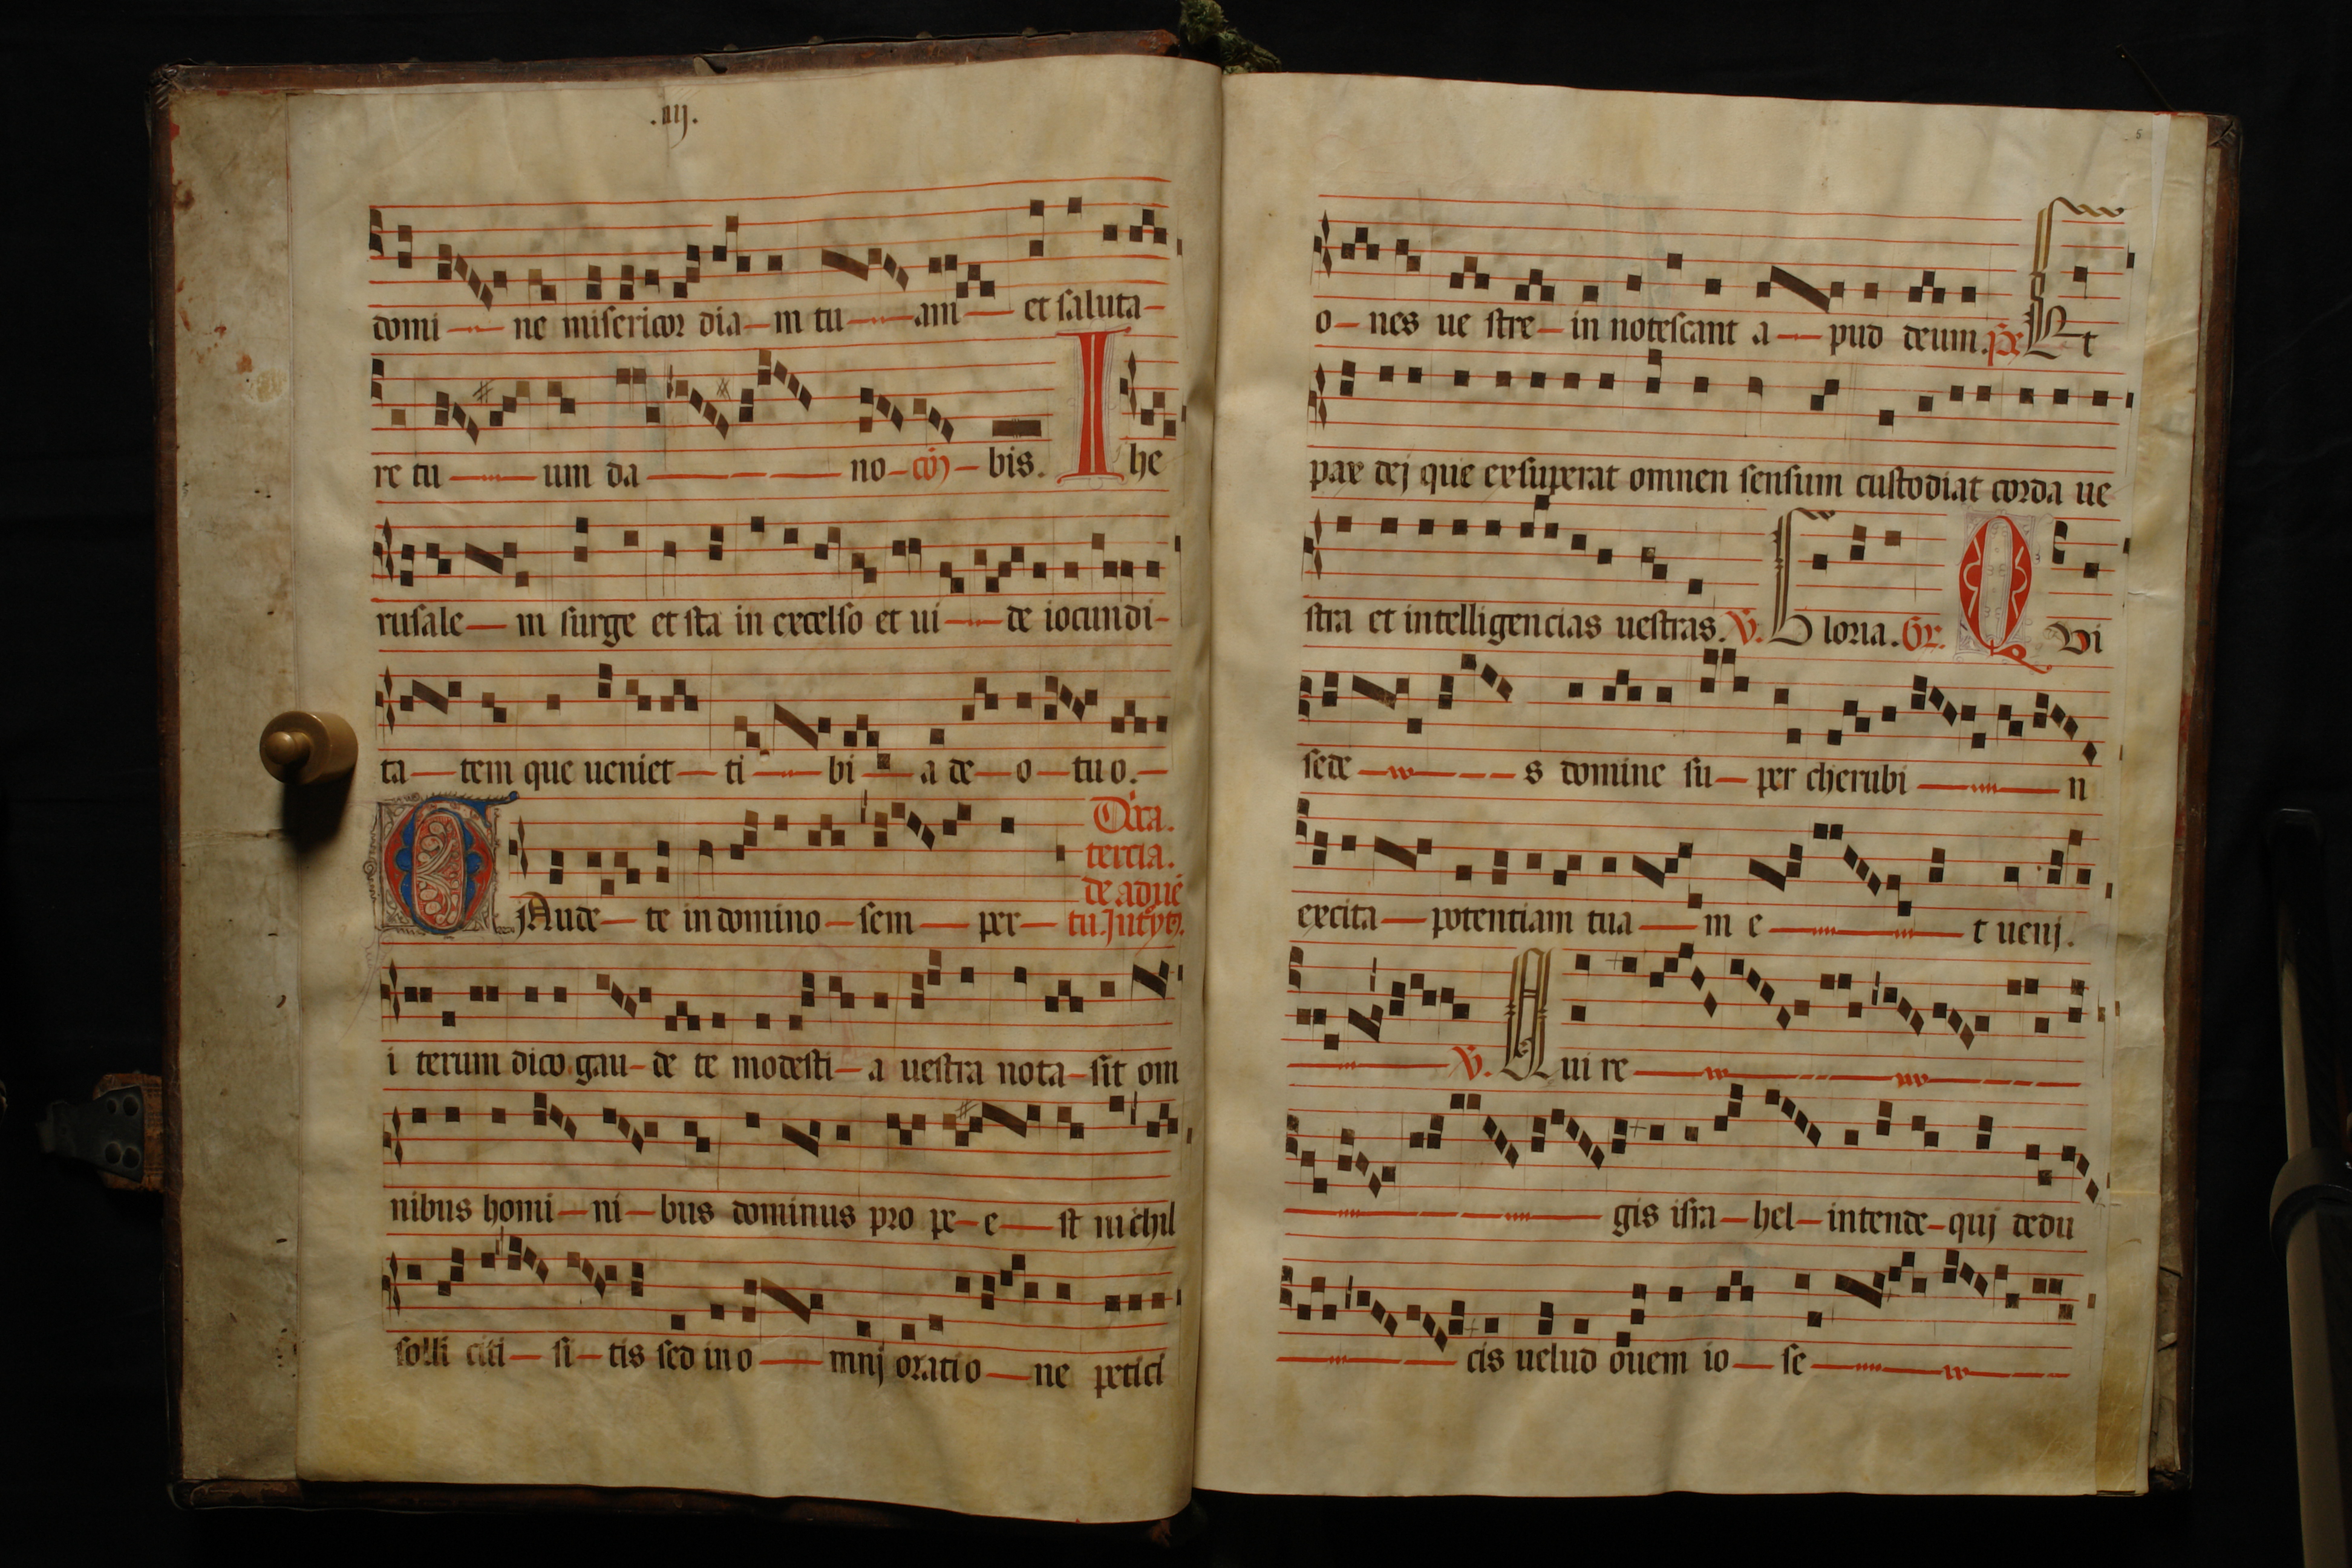 .iiij.
domi ne misericor dia m tu am et saluta
re tu um da no bis. Ihe
rusale m surge et sta in excelso et ui de iocundi
ta tem que ueniet ti bi a de o tuo.
GAude te in domino sem per
Dca.
tercia.
de aduē
tu.
i terum dico gau de te modesti a uestra nota sit om
nibus homi ni bus dominus pro pe e st nichil
solli citi si tis sed in o mnj oratio ne petici
5
o nes ue stre in notescant a pud deum. Ps Et
pax dej que exsuperat omnen sensum custodiat corda ue
stra et intelligencias uestras. V. Gloria. Gr. QVi
sede s domine su per cherubi n
excita potentiam tua m e t uenj.
V. Qui re
gis isra hel intende quj dedu
cis uelud ouem io se